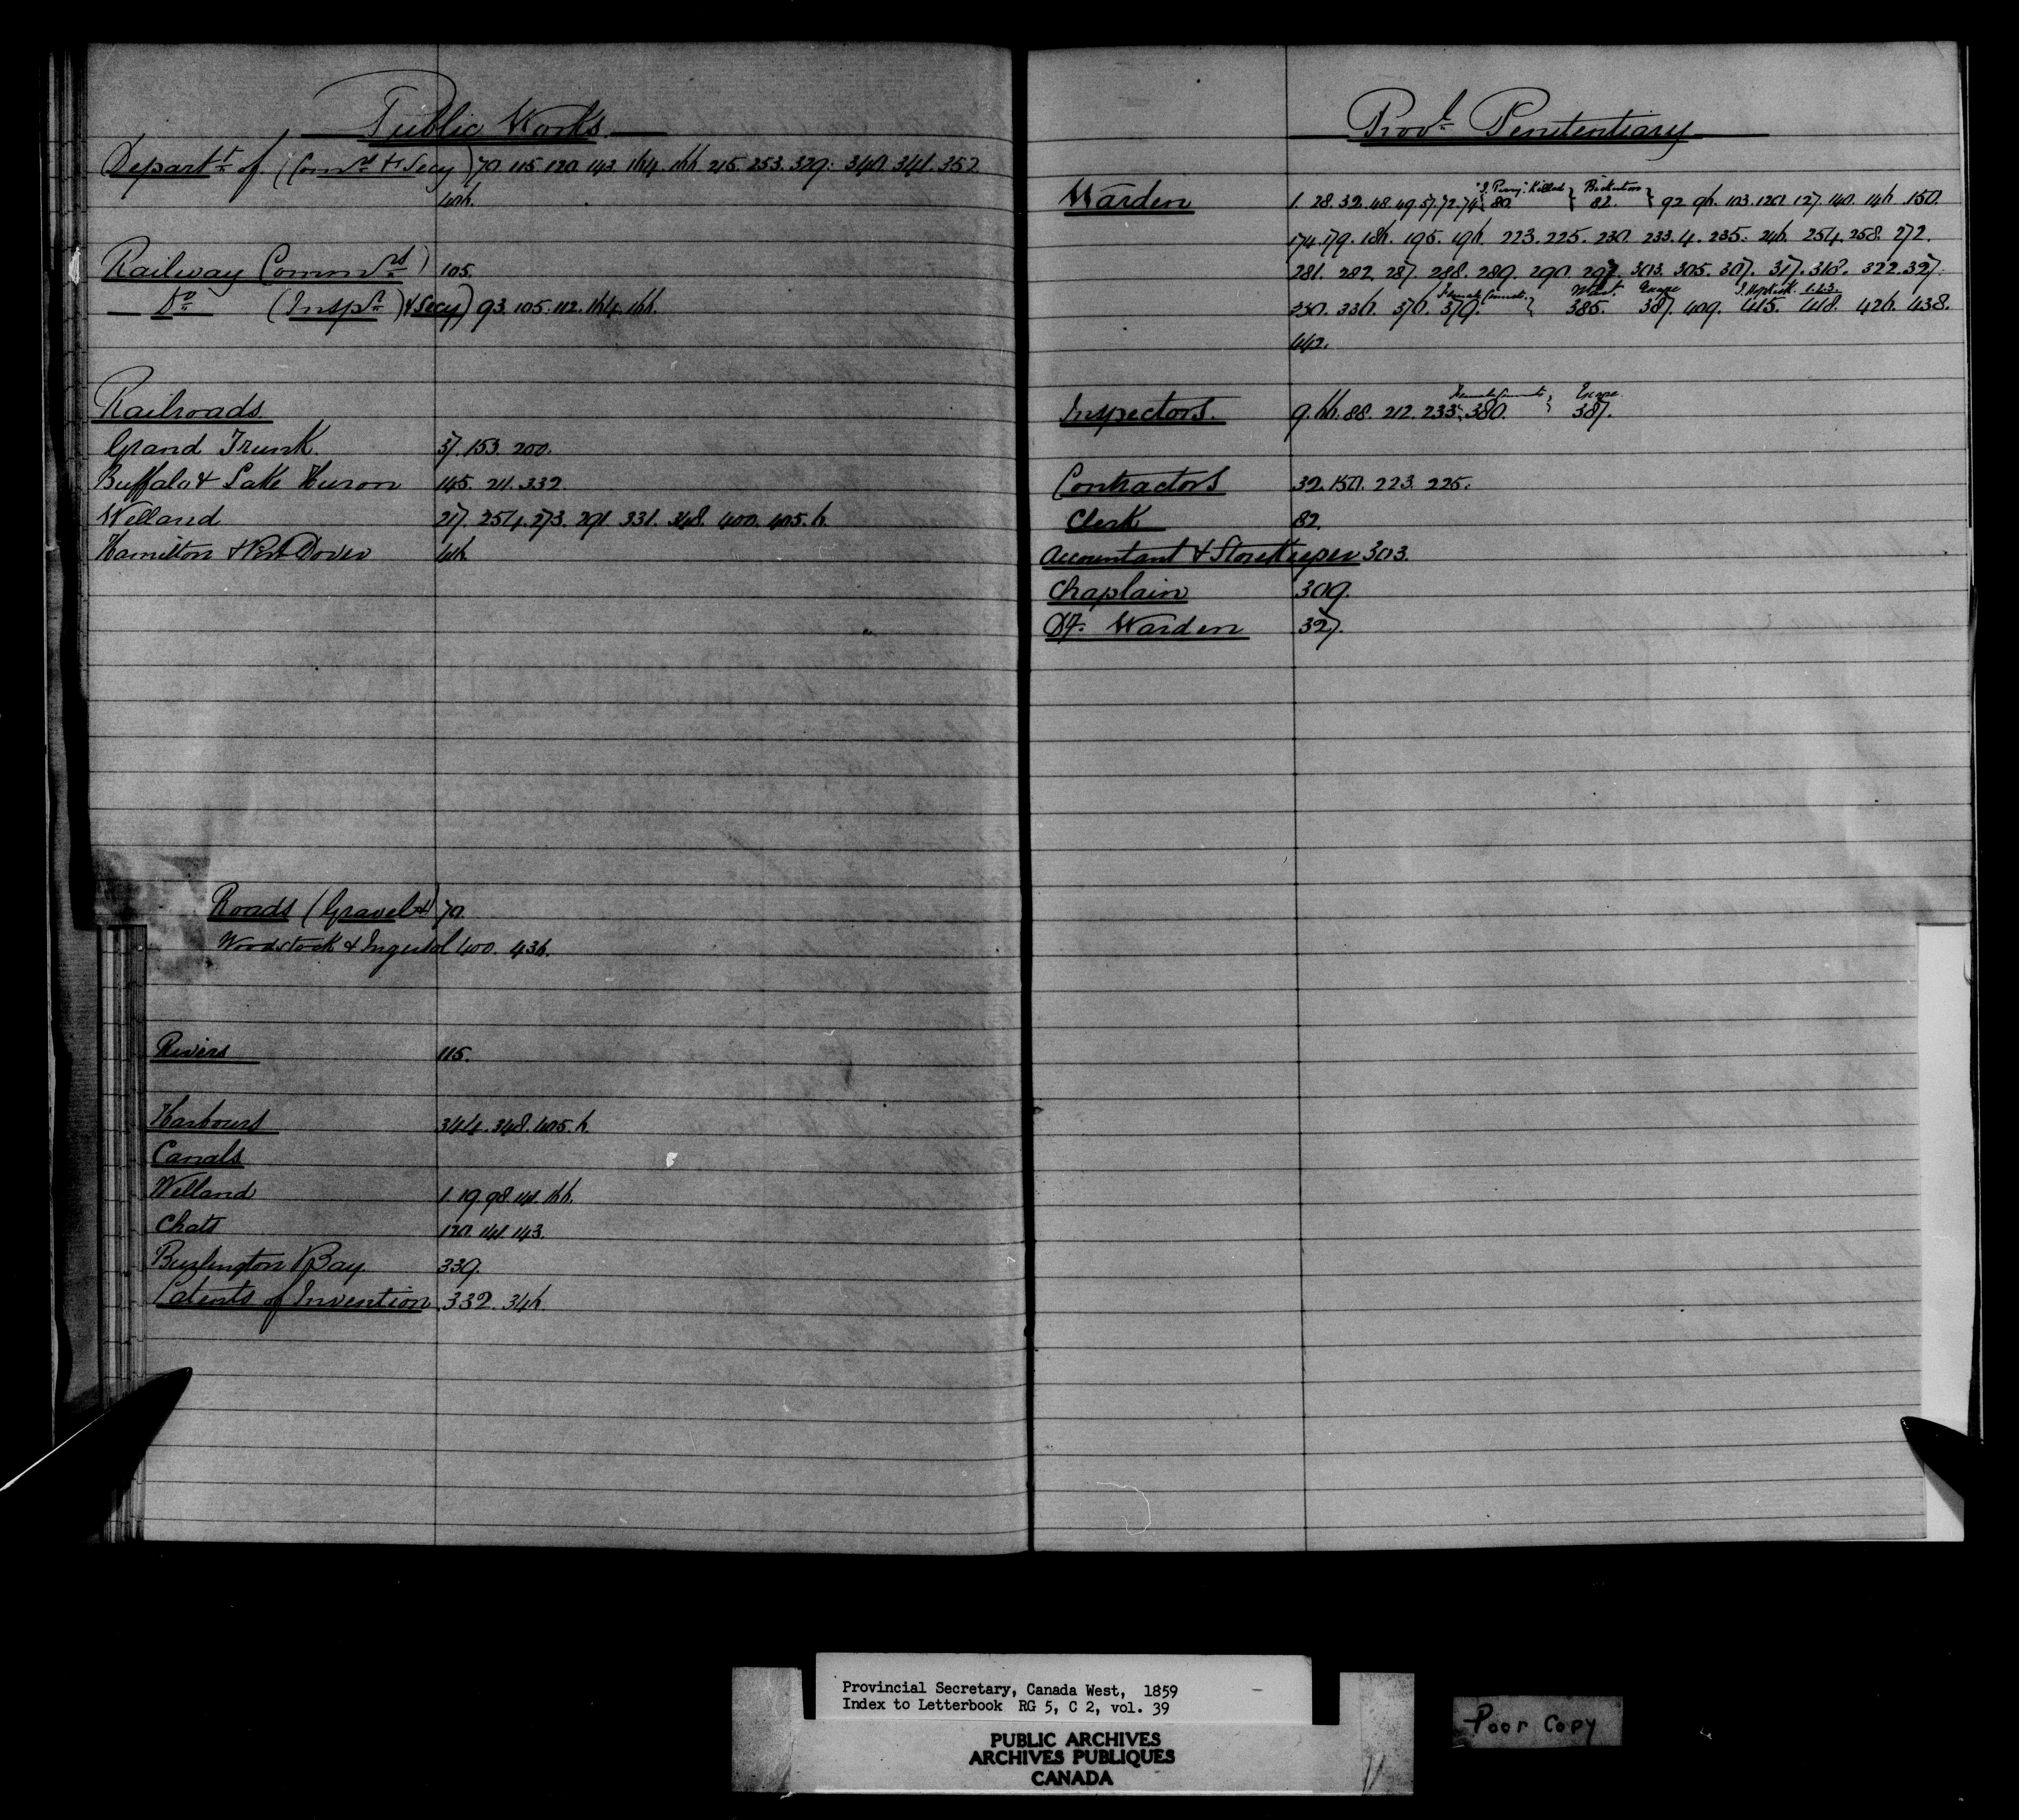 Public Works
Departt. of (Comrs & Secy) 70. 115. 120. 143. 164. 166. 215. 253. 329. 340. 341. 352.
406.
Railway Commrs) 105.
Do (Inspr & Secy) 93. 105. 112. 164. 166.
Railroads
Grand Trunk 37. 153. 200.
Buffalo & Lake Huron 145. 211. 332.
Welland 217. 254. 273. 291. 331. 348. 400. 405. 6.
Hamilton & Port Dover 416.
Roads (Gravel &) 70.
Woodstock & Ingersol 400. 436.
Rivers 115.
Harbours 344. 348. 405. 6.
Canals
Welland 1. 19. 98. 141. 166.
Chats 120. 141. 143.
Burlington Bay 339.
Patents of Invention 332. 346.
Provl. Penitentiary
"J. Perry" Killed
Warden 1. 28. 32. 48. 49. 57. 72. 74 { 80. } 82. } 92. 96. 103. 120. 127. 140. 146. 150.
174. 179. 186. 195. 196. 223. 225. 230. 233. 4. 235. 246. 254. 258. 272.
281. 282. 287. 288. 289. 290. 297. 303. 305. 307. 317. 318. 322. 327.
Female Convicts. Escape
330. 336. 370. 379. } 385. 387. 409. 415. 418. 426. 438.
442.
Female Convicts, Escape
Inspectors. 9. 66. 88. 212. 233. 380. } 387.
Contractors 32. 150. 223. 225.
Clerk 82.
Accountant & Storekeeper 303.
Chaplain 309.
Dy. Warden 327.
Provincial Secretary, Canada West, 1859
Index to Letterbook RG 5, C 2, vol. 39
PUBLIC ARCHIVES
ARCHIVES PUBLIQUES
CANADA
Poor Copy